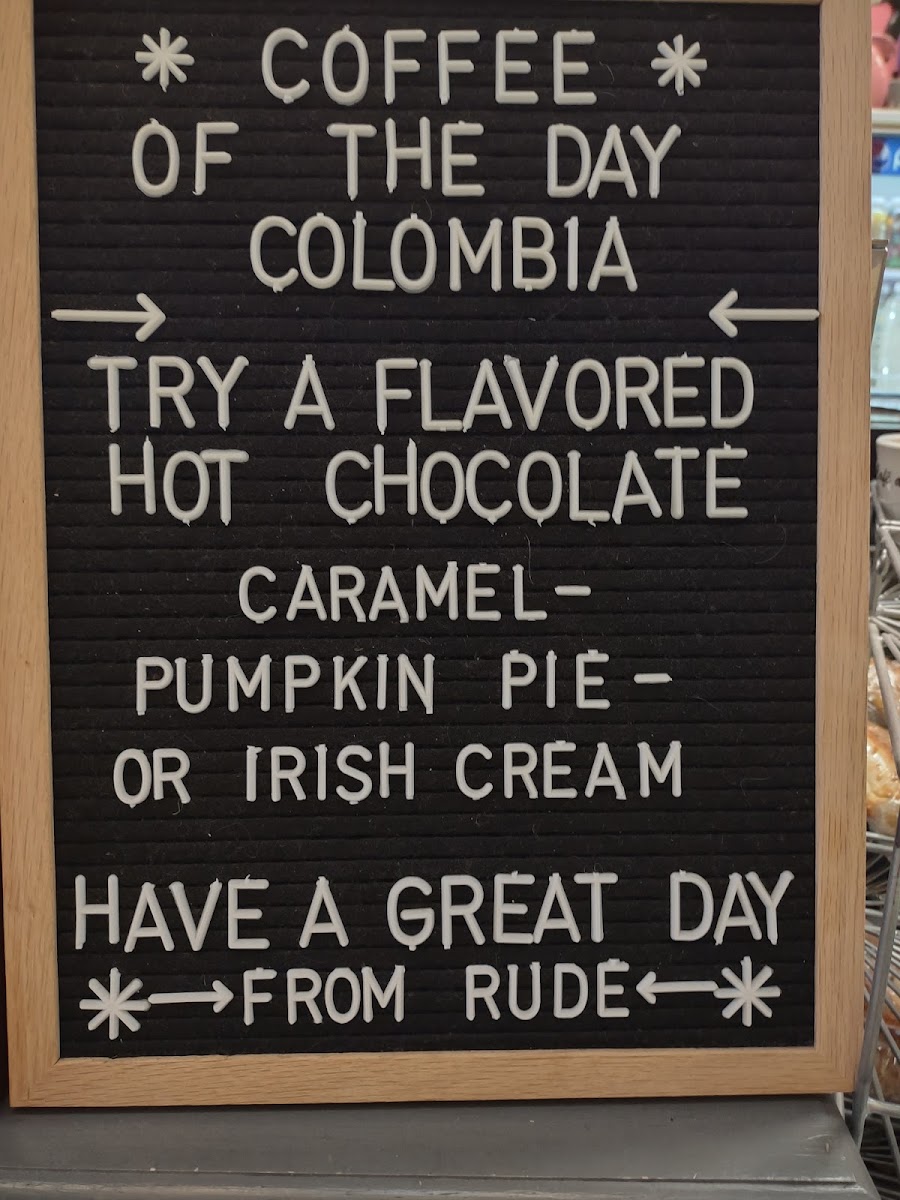 * COFFEE *
OF THE DAY
COLOMBIA
→ ←
TRY A FLAVORED
HOT CHOCOLATE
CARAMEL-
PUMPKIN PIE-
OR IRISH CREAM
HAVE A GREAT DAY
*→FROM RUDE←*